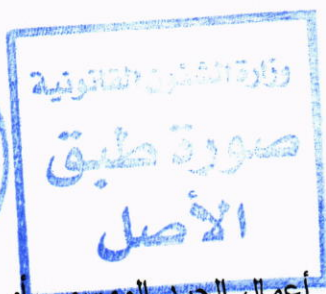 وزارة الشئون القانونية
صورة طبق
الأصل
أعمال